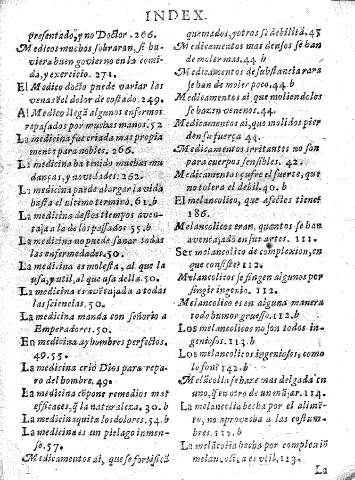 INDEX.
presentado, y no Doctor. 266.
Medicos muchos sobraran, si hu-
viera buen govierno en la comi-
da, y exercicio. 271.
El Medico docto puede variar las
venas del dolor de costado. 249.
Al Medico llegã algunos enfermos
repasados por muchas manos. 52
La medicina fue criada mas propia
mente para nobles. 266.
La medicina ha tenido muchas mu
danças, y novedades. 262.
La medicina puede alargar la vida
hasta el ultimo termino. 61. b
La medicina destos tiempos aven-
taja a la de los passados 55. b
La medicina no puede sanar todas
las enfermedades. 50.
La medicina es molesta, al que la
usa, y util, al que usa della. 50.
La medicina es avẽtajada a todas
las sciencias. 50.
La medicina manda con señorio a
Emperadores. 50.
En medicina ay hombres perfectos.
49. 55.
La medicina criò Dios para repa-
ro del hombre. 49.
La medicina cõpone remedios mas
efficaces, q̃ la naturaleza. 30. b
La medicina quita los dolores. 54. b
La medicina es un pielago inmen-
so. 57.
Medicamentos ai, que se fortificã
quemados, y otros se debilitã. 45
Medicamentos mas densos se han
de moler mas. 44 b
Medicamentos de substancia rara
se han de moler poco. 44. b
Medicamentos ai, que moliendolos
se hazen venenos. 44.
Medicamentos ai, que molidos pier
den su fuerça 44.
Medicamentos irritantes no son
para cuerpos sensibles. 42.
Medicamentos çufre el fuerte, que
no tolera el debil. 40. b
El melancolico, que afectos tiene?
186.
Melancolicos eran, quantos se han
aventajado en sus artes. 111.
Ser melancolico de complexion, en
que consiste? 112.
Melancolicos se fingen algunos por
fingir ingenio. 112
Melancolico es en alguna manera
todo humor gruesso. 112. b
Los melancolicos no son todos in-
geniosos. 113. b
Los melancolicos ingeniosos, como
lo son? 142. b
Melãcolia se haze mas delgada en
uno, q̃ en otro de un manjar. 114.
La melancolia hecha por el alimẽ-
to, no aprovecha a las costum-
bres. 112. b
La melãcolia hecha por complexiõ
melancolica es util. 113.
La